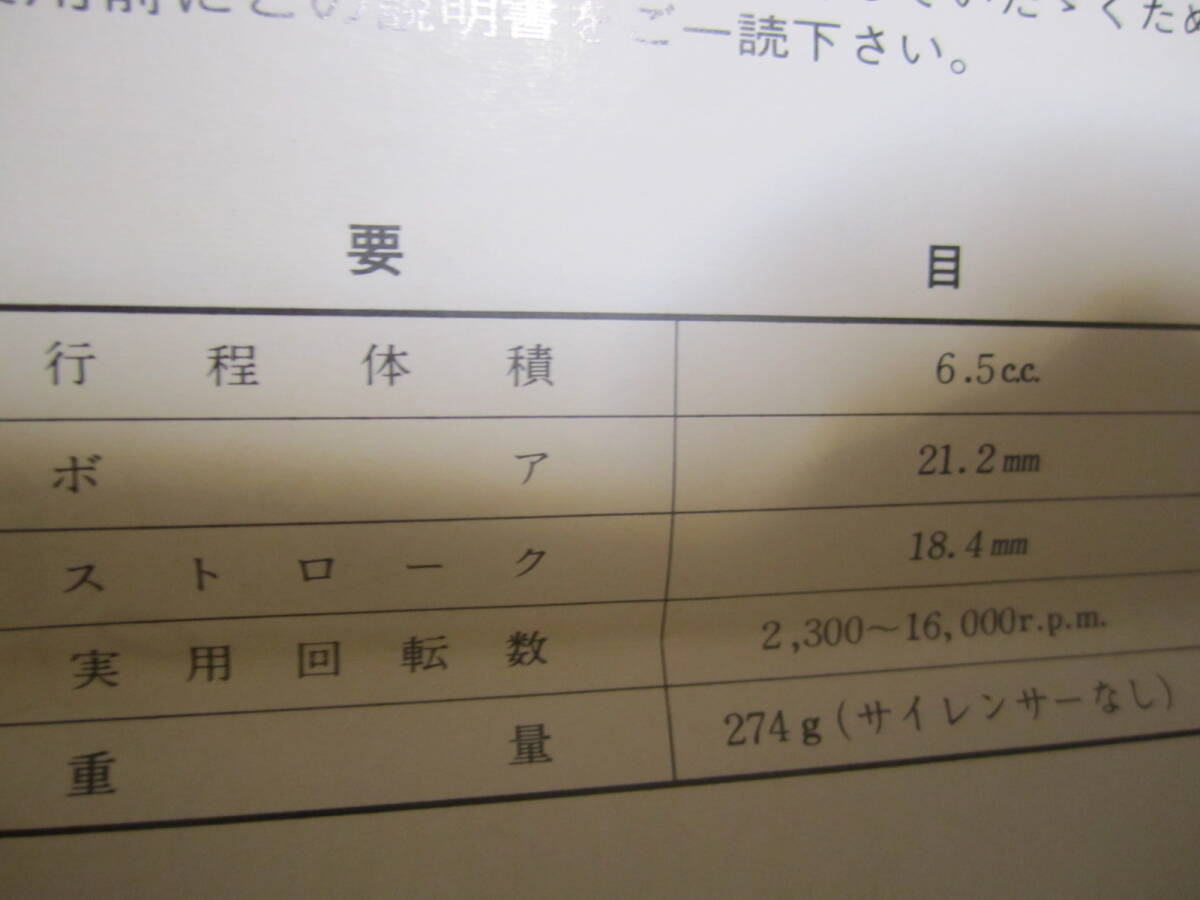 していたゞくため
用前にこの説明書をご一読下さい。
要目
行程体積 6.5c.c.
ボア 21.2mm
ストローク 18.4mm
実用回転数 2,300～16,000r.p.m.
重量 274g(サイレンサーなし)